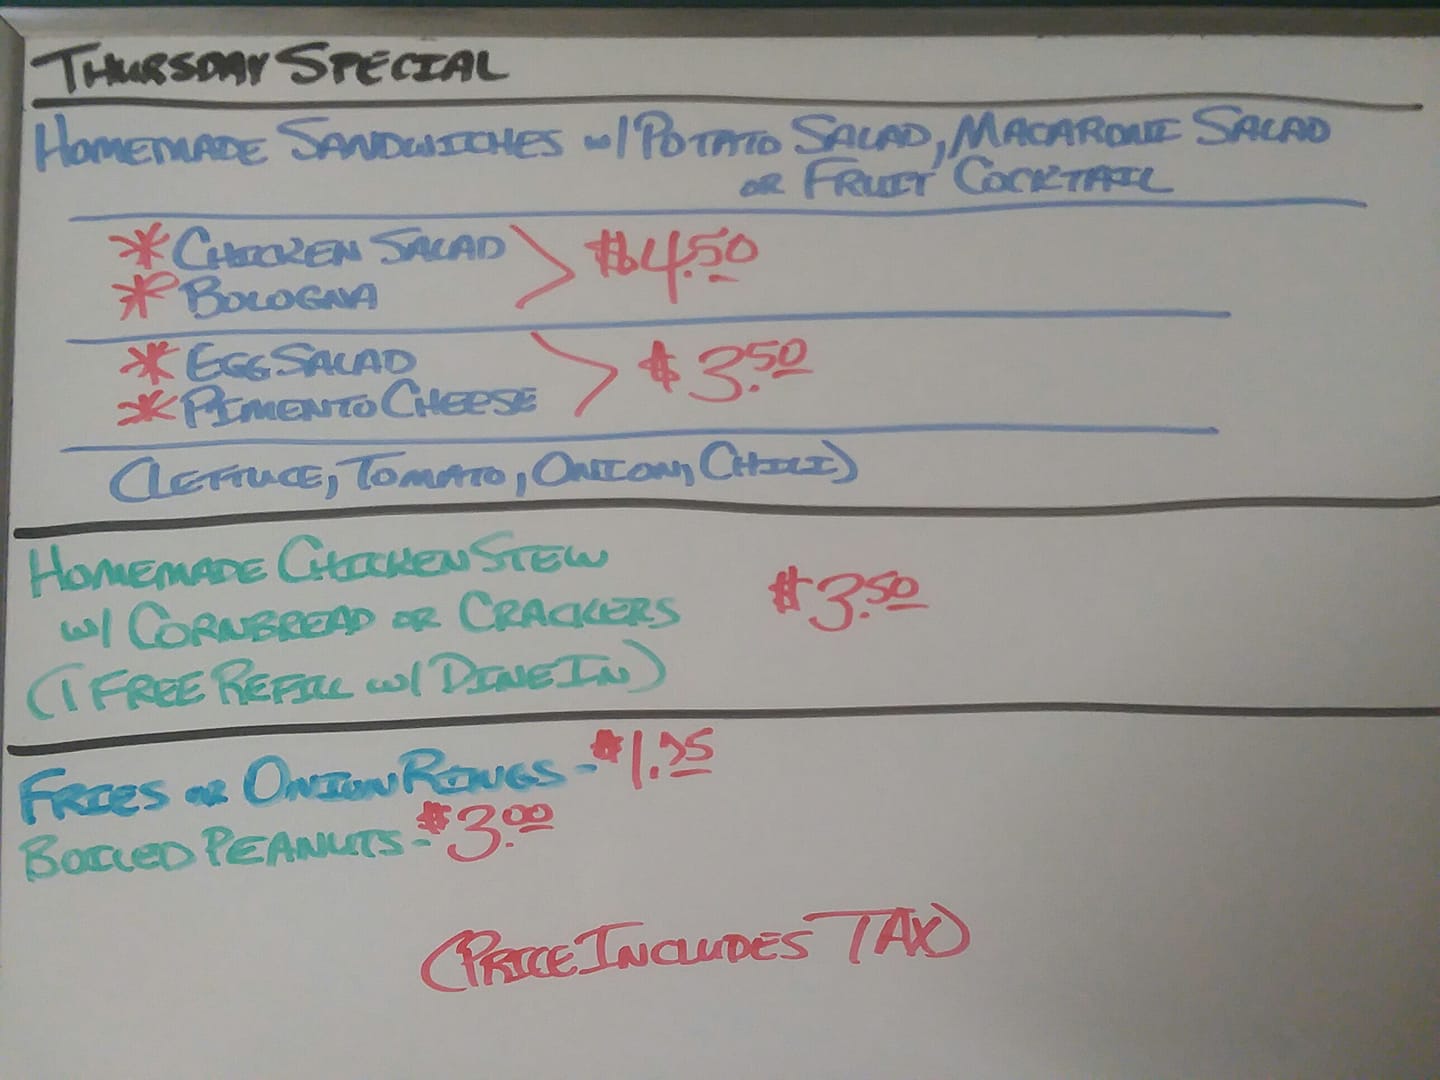 THURSDAY SPECIAL
HOMEMADE SANDWICHES w/ POTATO SALAD, MACARONI SALAD
OR FRUIT COCKTAIL
* CHICKEN SALAD > $4.50
* BOLOGNA
* EGG SALAD > $3.50
* PIMENTO CHEESE
(LETTUCE, TOMATO, ONION, CHILI)
HOMEMADE CHICKEN STEW
w/ CORNBREAD OR CRACKERS $3.50
(1 FREE REFILL w/ DINE IN)
FRIES OR ONION RINGS - $1.75
BOILED PEANUTS - $3.00
(PRICE INCLUDES TAX)